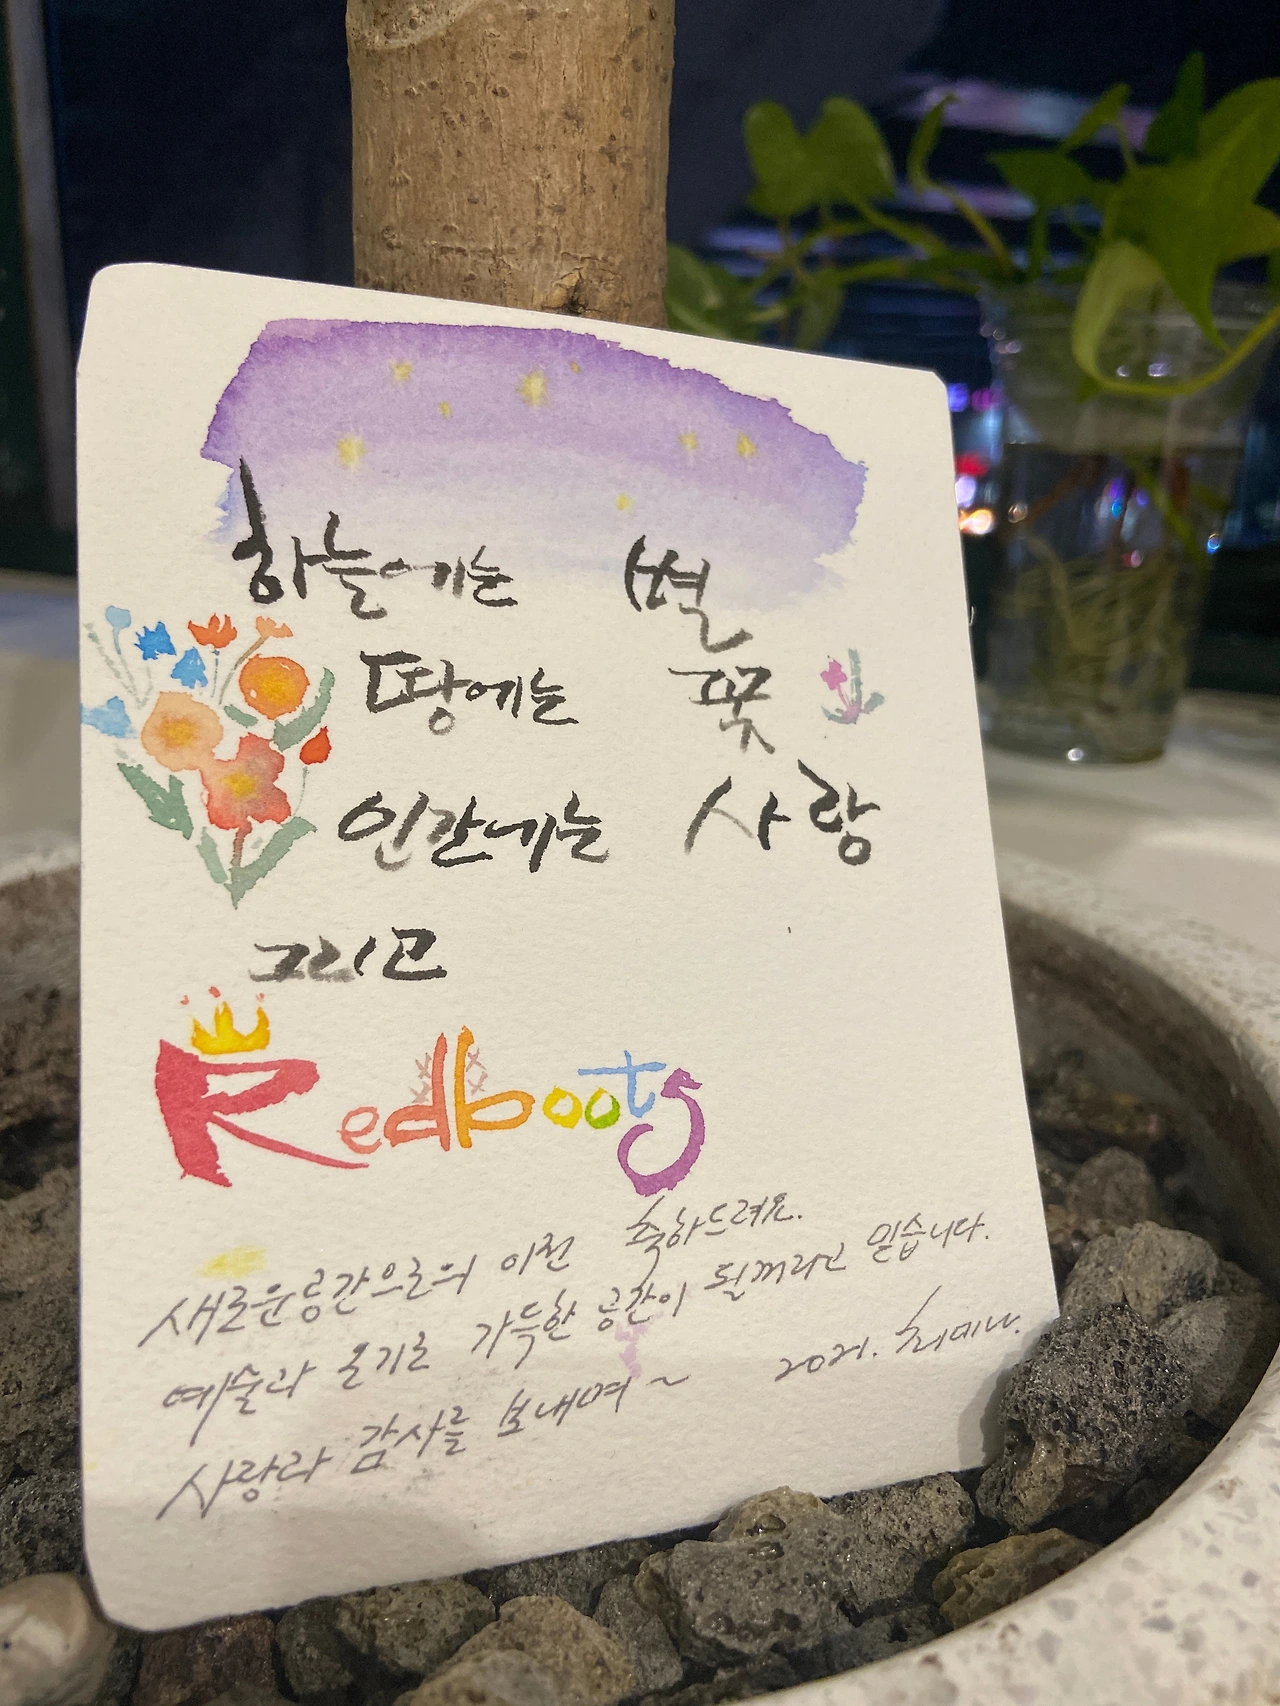 하늘에는 별
땅에는 꽃
인간에게는 사랑
그리고
Redboots
새로운공간으로의 이전 축하드려요.
예술과 온기로 가득한 공간이 될꺼라고 믿습니다.
사랑과 감사를 보내며 ~ 2021. 최미나.